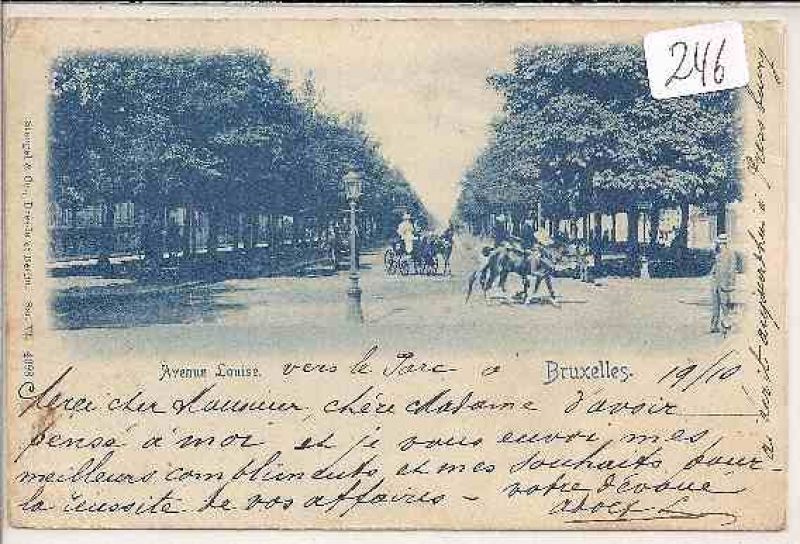 246
Stengel & Co., Dresde et Berlin. Ser. VI. 4098
Avenue Louise. vers le Parc à Bruxelles. 19/10
Merci cher Monsieur, chère Madame d'avoir
pensé à moi et je vous envoi mes
meilleurs compliments et mes souhaits pour
la réussite de vos affaires – votre dévoué
Adolf
aujourd'hui à